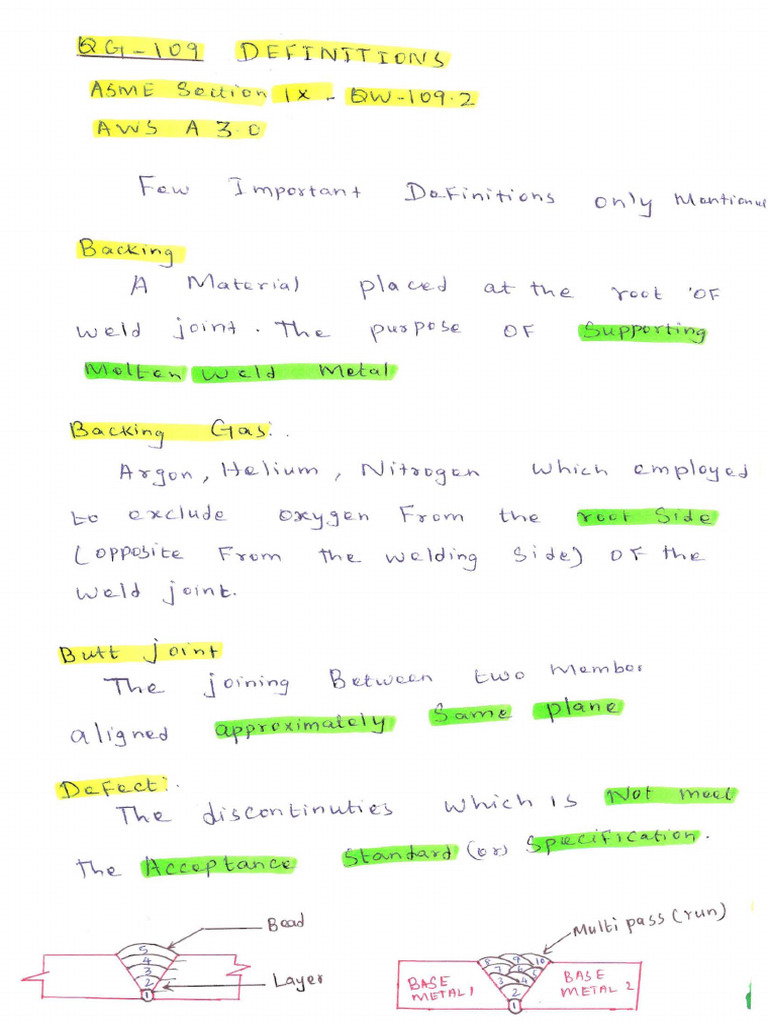 QG-109 DEFINITIONS
ASME Section IX - QW-109.2
AWS A 3.0
Few Important Definitions only
Backing
A Material placed at the root OF
weld joint. The purpose OF Supporting
Molten weld Metal
Backing Gas:.
Argon, Helium, Nitrogen which employed
to exclude oxygen From the root Side
(opposite From the welding Side) OF the
weld joint.
Butt joint
The joining Between two Member
aligned approximately Same plane
Defect:.
The discontinuties which is Not meet
The Acceptance Standard (or) Specification.
Bead
Layer
5
4
3
2
1
Multi pass (run)
BASE
METAL 1
BASE
METAL 2
8 9 10
7 6 5
3 4
2
1